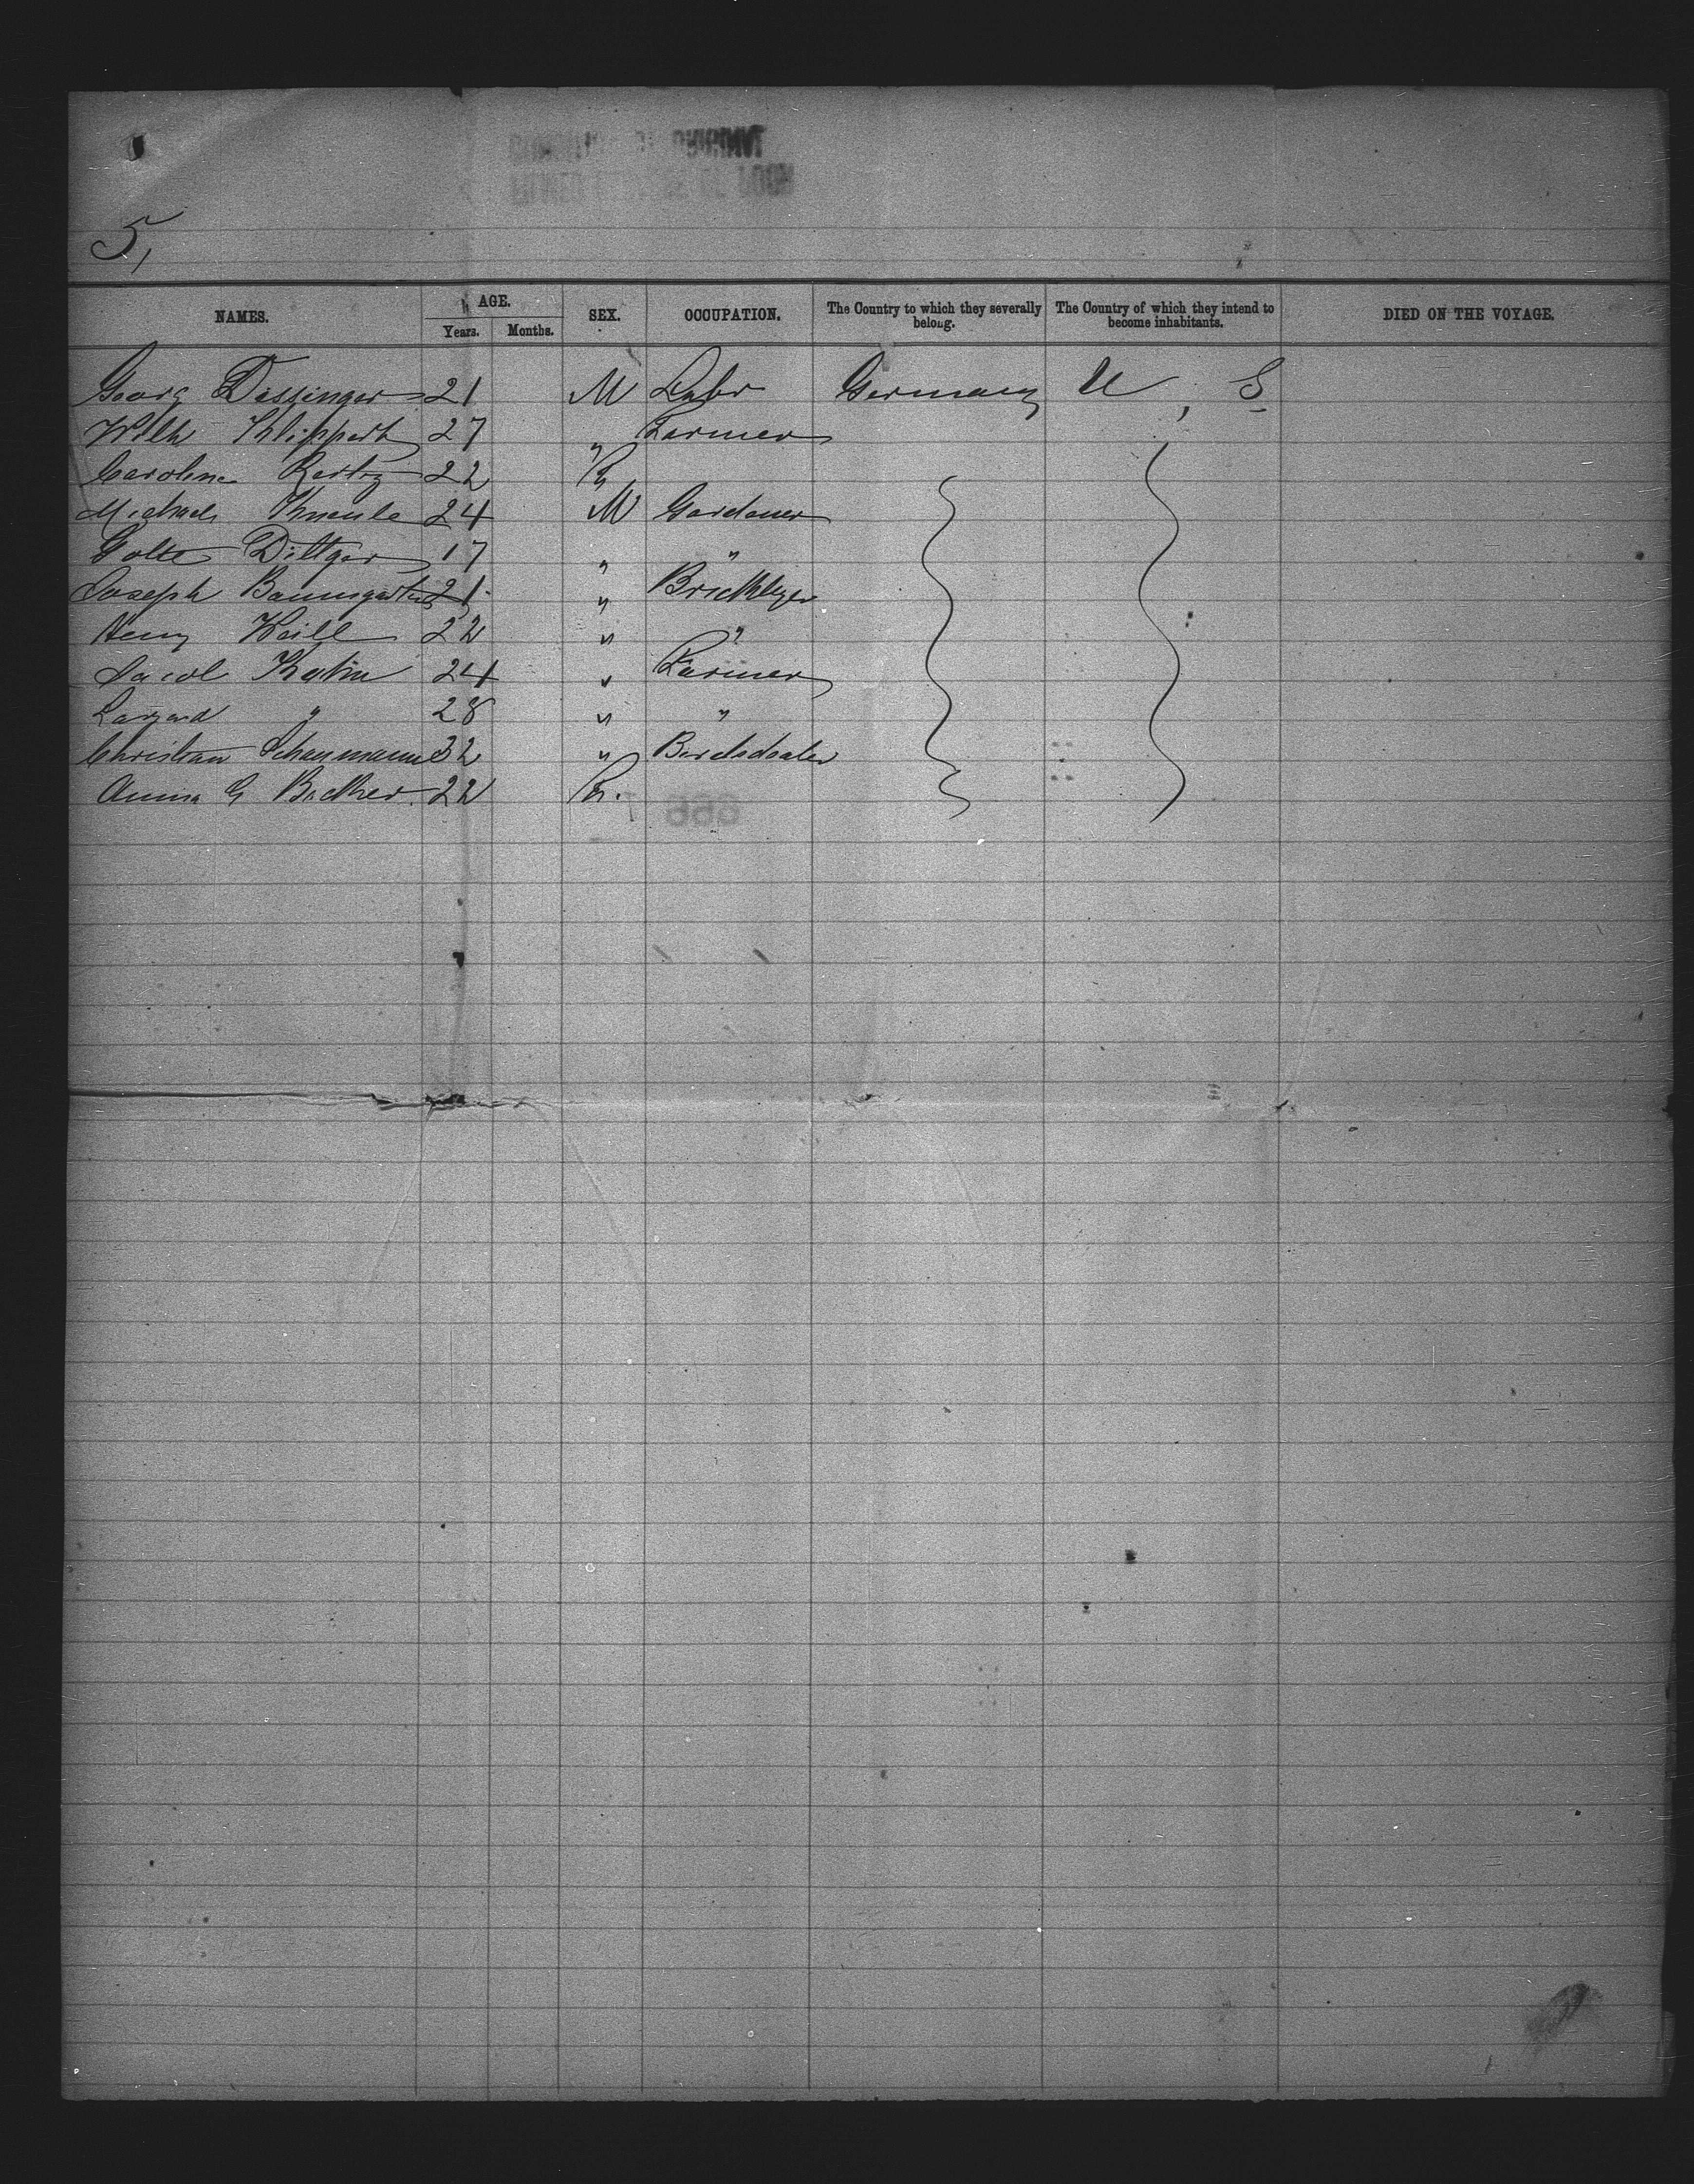 5,
NAMES. AGE. SEX. OCCUPATION. The Country to which they severally belong. The Country of which they intend to become inhabitants. DIED ON THE VOYAGE.
Years. Months.
Georg Dessinger 21 M Labr Germany U, S
Wilh Klippert 27 " Farmer
Caroline 22 F
Michael 24 M Gardener
Dittgar 17 " "
Joseph Baumgartner 21 " Bricklayer
Henry Weill 22 " "
Jacob Kahn 24 " Farmer
Lazard " 28 " "
Christian Schaumann 32 "
Anna G Becker 22 F.